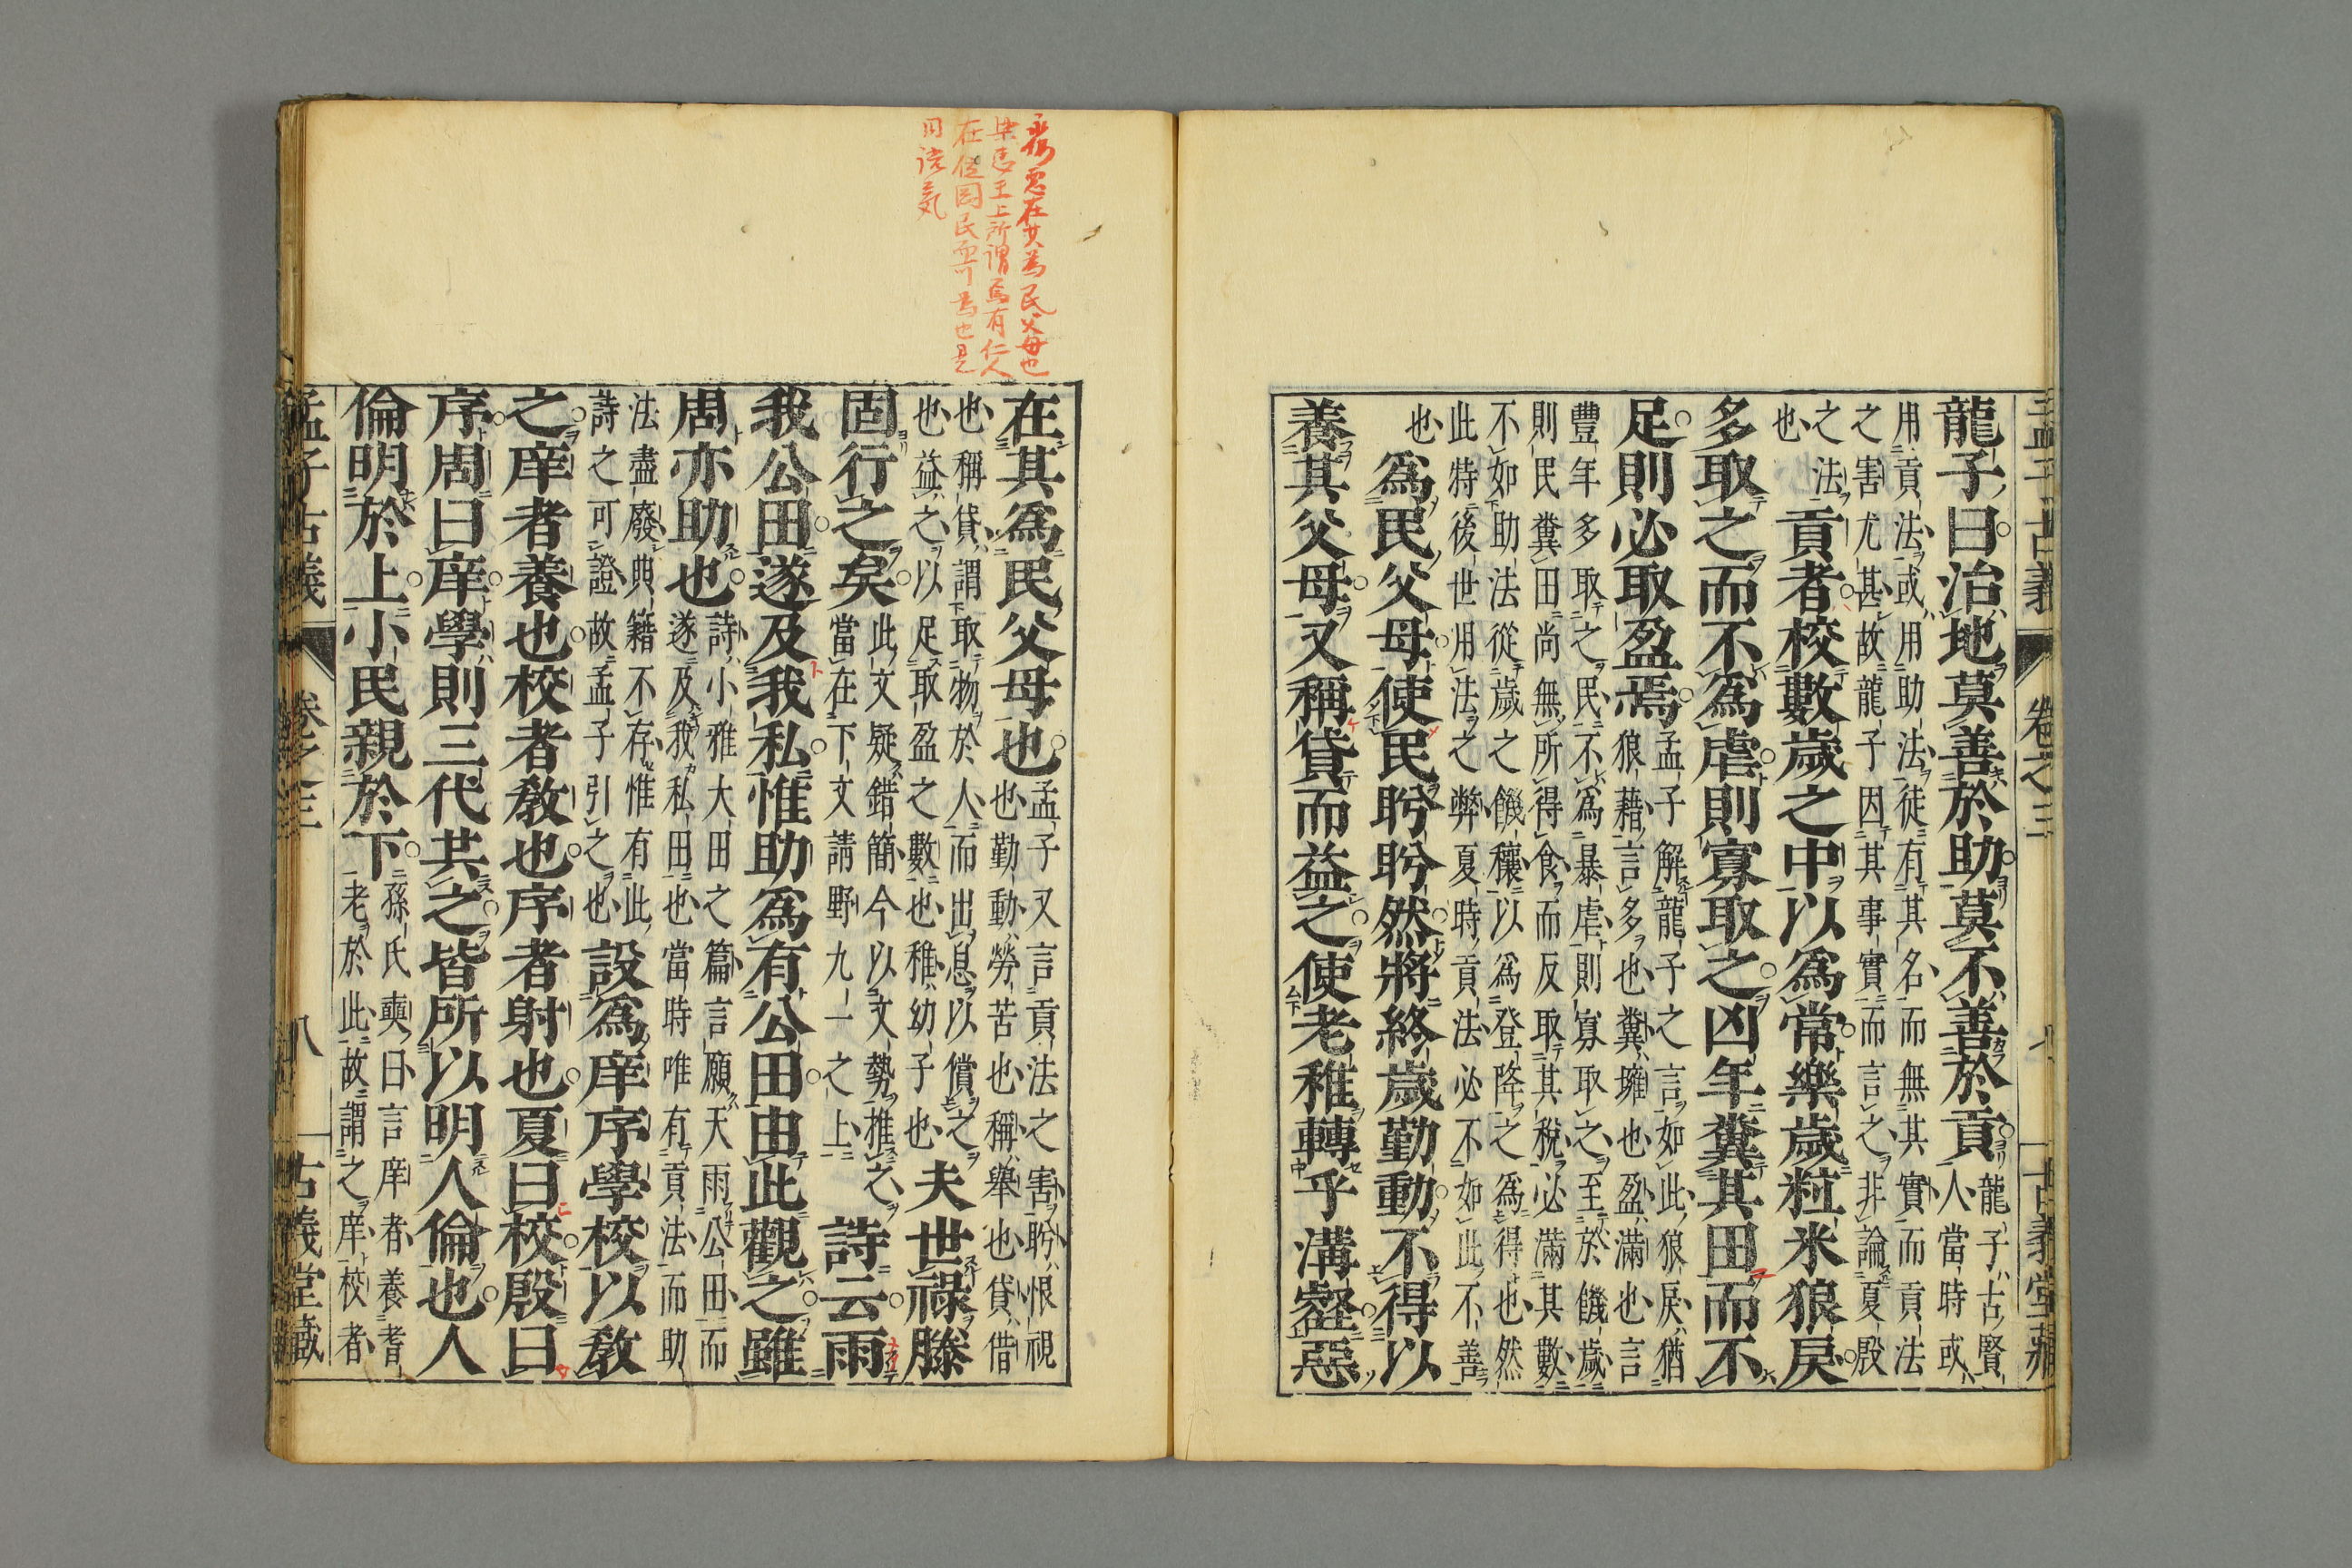 孟子古義 卷之三 七 古義堂藏
龍子曰治地莫善於助莫不善於貢龍子古賢
人當時或
用貢法或用助法徒有其名而無其實而貢法
之害尤甚故龍子因其事實而言之非論夏殷
之法
也貢者校數歲之中以爲常樂歲粒米狼戾
多取之而不爲虐則寡取之凶年糞其田而不
足則必取盈焉孟子解龍子之言如此狼戾猶
狼藉言多也糞擁也盈滿也言
豐年多取之民不爲暴虐則寡取之至於饑歲
則民糞田尚無所得食而反取其稅必滿其數
不如助法從歲之饑穰以爲登降之爲得也然
此特後世用法之弊夏時貢法必不如此不善
也爲民父母使民盻盻然將終歲勤動不得以
養其父母又稱貸而益之使老稚轉乎溝壑惡
在其爲民父母也孟子又言貢法之害盻恨視
也勤動勞苦也稱舉也貸借
也稱貸謂取物於人而出息以償之
也益之以足取盈之數也稚幼子也夫世祿滕
固行之矣此文疑錯簡今以文勢推之
當在下文請野九一之上詩云雨
我公田遂及我私惟助爲有公田由此觀之雖
周亦助也詩小雅大田之篇言願天雨公田而
遂及我私田也當時唯有貢法而助
法盡廢典籍不存惟有此
詩之可證故孟子引之也設爲庠序學校以敎
之庠者養也校者敎也序者射也夏曰校殷曰
序周曰庠學則三代共之皆所以明人倫也人
倫明於上小民親於下孫氏奭曰言庠者養耆
老於此故謂之庠校者
孟子古義 卷之三 八 古義堂藏
惡在其爲民父母也
梁惠王上所謂焉有仁人
在位罔民而可爲也是
用語氣